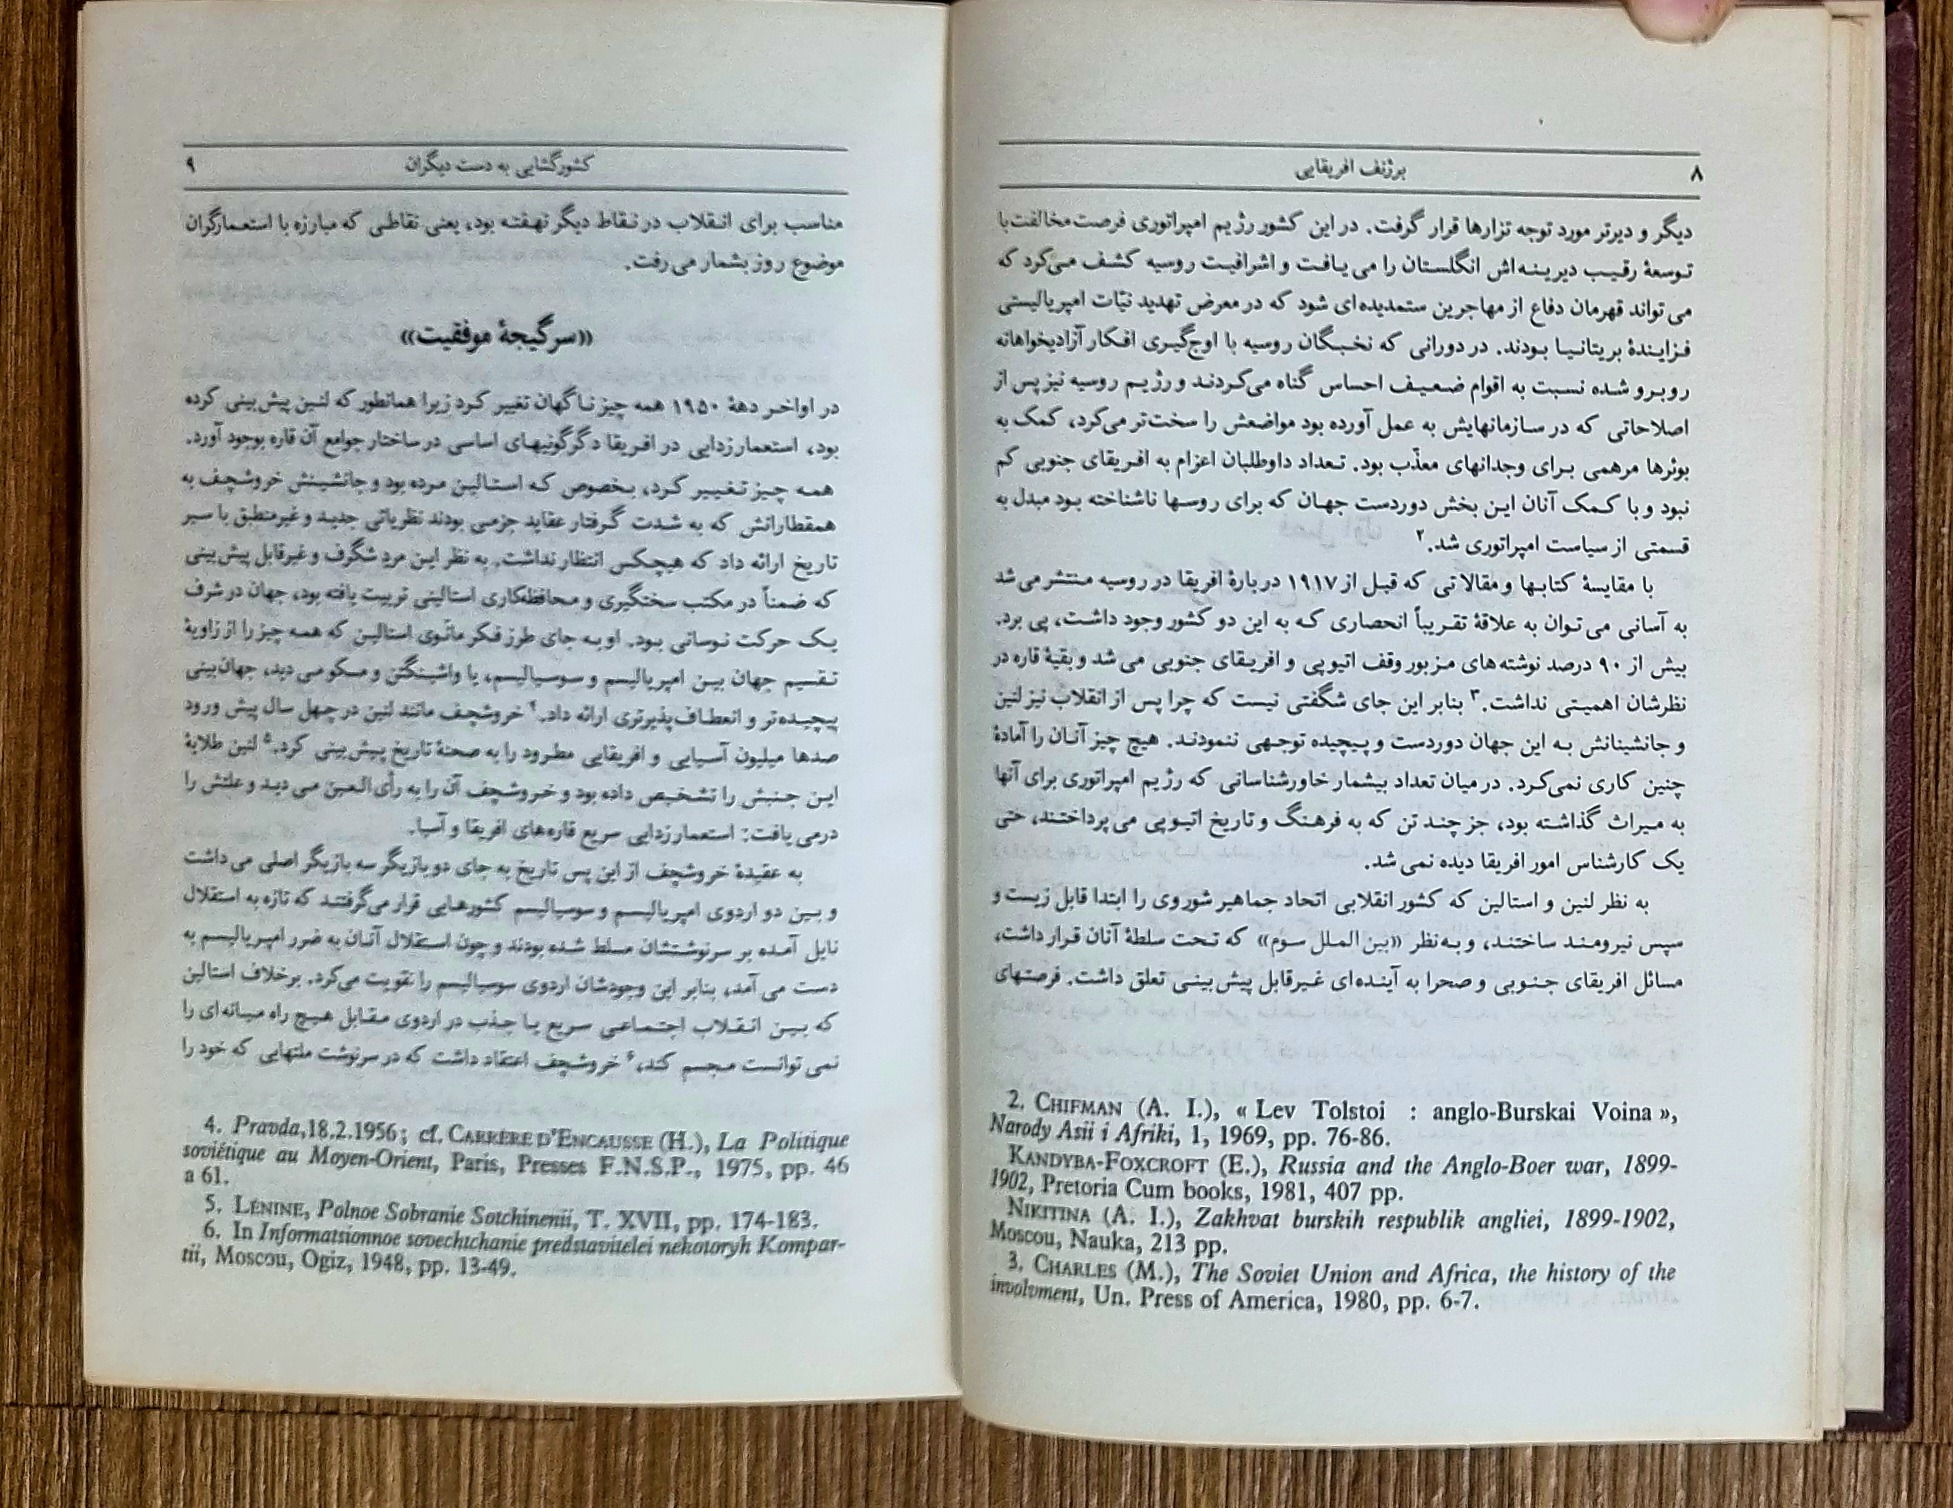 ۸
برژنف افریقایی
دیگر و دیرتر مورد توجه تزارها قرار گرفت. در این کشور رژیم امپراتوری فرصت مخالفت با
توسعهٔ رقیب دیرینه‌اش انگلستان را می‌یافت و اشرافیت روسیه کشف می‌کرد که
می‌تواند قهرمان دفاع از مهاجرین ستمدیده‌ای شود که در معرض تهدید نیّات امپریالیستی
فزایندهٔ بریتانیا بودند. در دورانی که نخبگان روسیه با اوج‌گیری افکار آزادیخواهانه
روبرو شده نسبت به اقوام ضعیف احساس گناه می‌کردند و رژیم روسیه نیز پس از
اصلاحاتی که در سازمانهایش به عمل آورده بود مواضعش را سخت‌تر می‌کرد، کمک به
بوئرها مرهمی برای وجدانهای معذّب بود. تعداد داوطلبان اعزام به افریقای جنوبی کم
نبود و با کمک آنان این بخش دوردست جهان که برای روسها ناشناخته بود مبدل به
قسمتی از سیاست امپراتوری شد.۲
با مقایسهٔ کتابها و مقالاتی که قبل از ۱۹۱۷ دربارهٔ افریقا در روسیه منتشر می‌شد
به آسانی می‌توان به علاقهٔ تقریباً انحصاری که به این دو کشور وجود داشت، پی برد.
بیش از ۹۰ درصد نوشته‌های مزبور وقف اتیوپی و افریقای جنوبی می‌شد و بقیهٔ قاره در
نظرشان اهمیتی نداشت.۳ بنابر این جای شگفتی نیست که چرا پس از انقلاب نیز لنین
و جانشینانش به این جهان دوردست و پیچیده توجهی ننمودند. هیچ چیز آنان را آمادهٔ
چنین کاری نمی‌کرد. در میان تعداد بیشمار خاورشناسانی که رژیم امپراتوری برای آنها
به میراث گذاشته بود، جز چند تن که به فرهنگ و تاریخ اتیوپی می‌پرداختند، حتی
یک کارشناس امور افریقا دیده نمی‌شد.
به نظر لنین و استالین که کشور انقلابی اتحاد جماهیر شوروی را ابتدا قابل زیست و
سپس نیرومند ساختند، و به نظر «بین الملل سوم» که تحت سلطهٔ آنان قرار داشت،
مسائل افریقای جنوبی و صحرا به آینده‌ای غیرقابل پیش‌بینی تعلق داشت. فرصتهای
2. CHIFMAN (A. I.), « Lev Tolstoi : anglo-Burskai Voina »,
Narody Asii i Afriki, 1, 1969, pp. 76-86.
KANDYBA-FOXCROFT (E.), Russia and the Anglo-Boer war, 1899-
1902, Pretoria Cum books, 1981, 407 pp.
NIKITINA (A. I.), Zakhvat burskih respublik angliei, 1899-1902,
Moscou, Nauka, 213 pp.
3. CHARLES (M.), The Soviet Union and Africa, the history of the
involvment, Un. Press of America, 1980, pp. 6-7.
کشورگشایی به دست دیگران
۹
مناسب برای انقلاب در نقاط دیگر نهفته بود، یعنی نقاطی که مبارزه با استعمارگران
موضوع روز بشمار می‌رفت.
«سرگیجهٔ موفقیت»
در اواخر دههٔ ۱۹۵۰ همه چیز ناگهان تغییر کرد زیرا همانطور که لنین پیش‌بینی کرده
بود، استعمارزدایی در افریقا دگرگونیهای اساسی در ساختار جوامع آن قاره بوجود آورد.
همه چیز تغییر کرد، بخصوص که استالین مرده بود و جانشینش خروشچف به
همقطارانش که به شدت گرفتار عقاید جزمی بودند نظریاتی جدید و غیرمنطبق با سیر
تاریخ ارائه داد که هیچکس انتظار نداشت. به نظر این مرد شگرف و غیرقابل پیش‌بینی
که ضمناً در مکتب سختگیری و محافظه‌کاری استالینی تربیت یافته بود، جهان در شرف
یک حرکت نوسانی بود. او به جای طرز فکر مانوی استالین که همه چیز را از زاویهٔ
تقسیم جهان بین امپریالیسم و سوسیالیسم، یا واشینگتن و مسکو می‌دید، جهان‌بینی
پیچیده‌تر و انعطاف‌پذیرتری ارائه داد.۴ خروشچف مانند لنین در چهل سال پیش ورود
صدها میلیون آسیایی و افریقایی مطرود را به صحنهٔ تاریخ پیش‌بینی کرد.۵ لنین طلایهٔ
این جنبش را تشخیص داده بود و خروشچف آن را به رأی‌العین می‌دید و علتش را
درمی‌یافت: استعمارزدایی سریع قاره‌های افریقا و آسیا.
به عقیدهٔ خروشچف از این پس تاریخ به جای دو بازیگر سه بازیگر اصلی می‌داشت
و بین دو اردوی امپریالیسم و سوسیالیسم کشورهایی قرار می‌گرفتند که تازه به استقلال
نایل آمده بر سرنوشتشان مسلط شده بودند و چون استقلال آنان به ضرر امپریالیسم به
دست می‌آمد، بنابر این وجودشان اردوی سوسیالیسم را تقویت می‌کرد. برخلاف استالین
که بین انقلاب اجتماعی سریع یا جذب در اردوی مقابل هیچ راه میانه‌ای را
نمی‌توانست مجسم کند،۶ خروشچف اعتقاد داشت که در سرنوشت ملتهایی که خود را
4. Pravda,18.2.1956; cf. CARRÈRE D'ENCAUSSE (H.), La Politique
soviétique au Moyen-Orient, Paris, Presses F.N.S.P., 1975, pp. 46
a 61.
5. LÉNINE, Polnoe Sobranie Sotchinenii, T. XVII, pp. 174-183.
6. In Informatsionnoe sovechtchanie predstavitelei nekotoryh Kompar-
tii, Moscou, Ogiz, 1948, pp. 13-49.